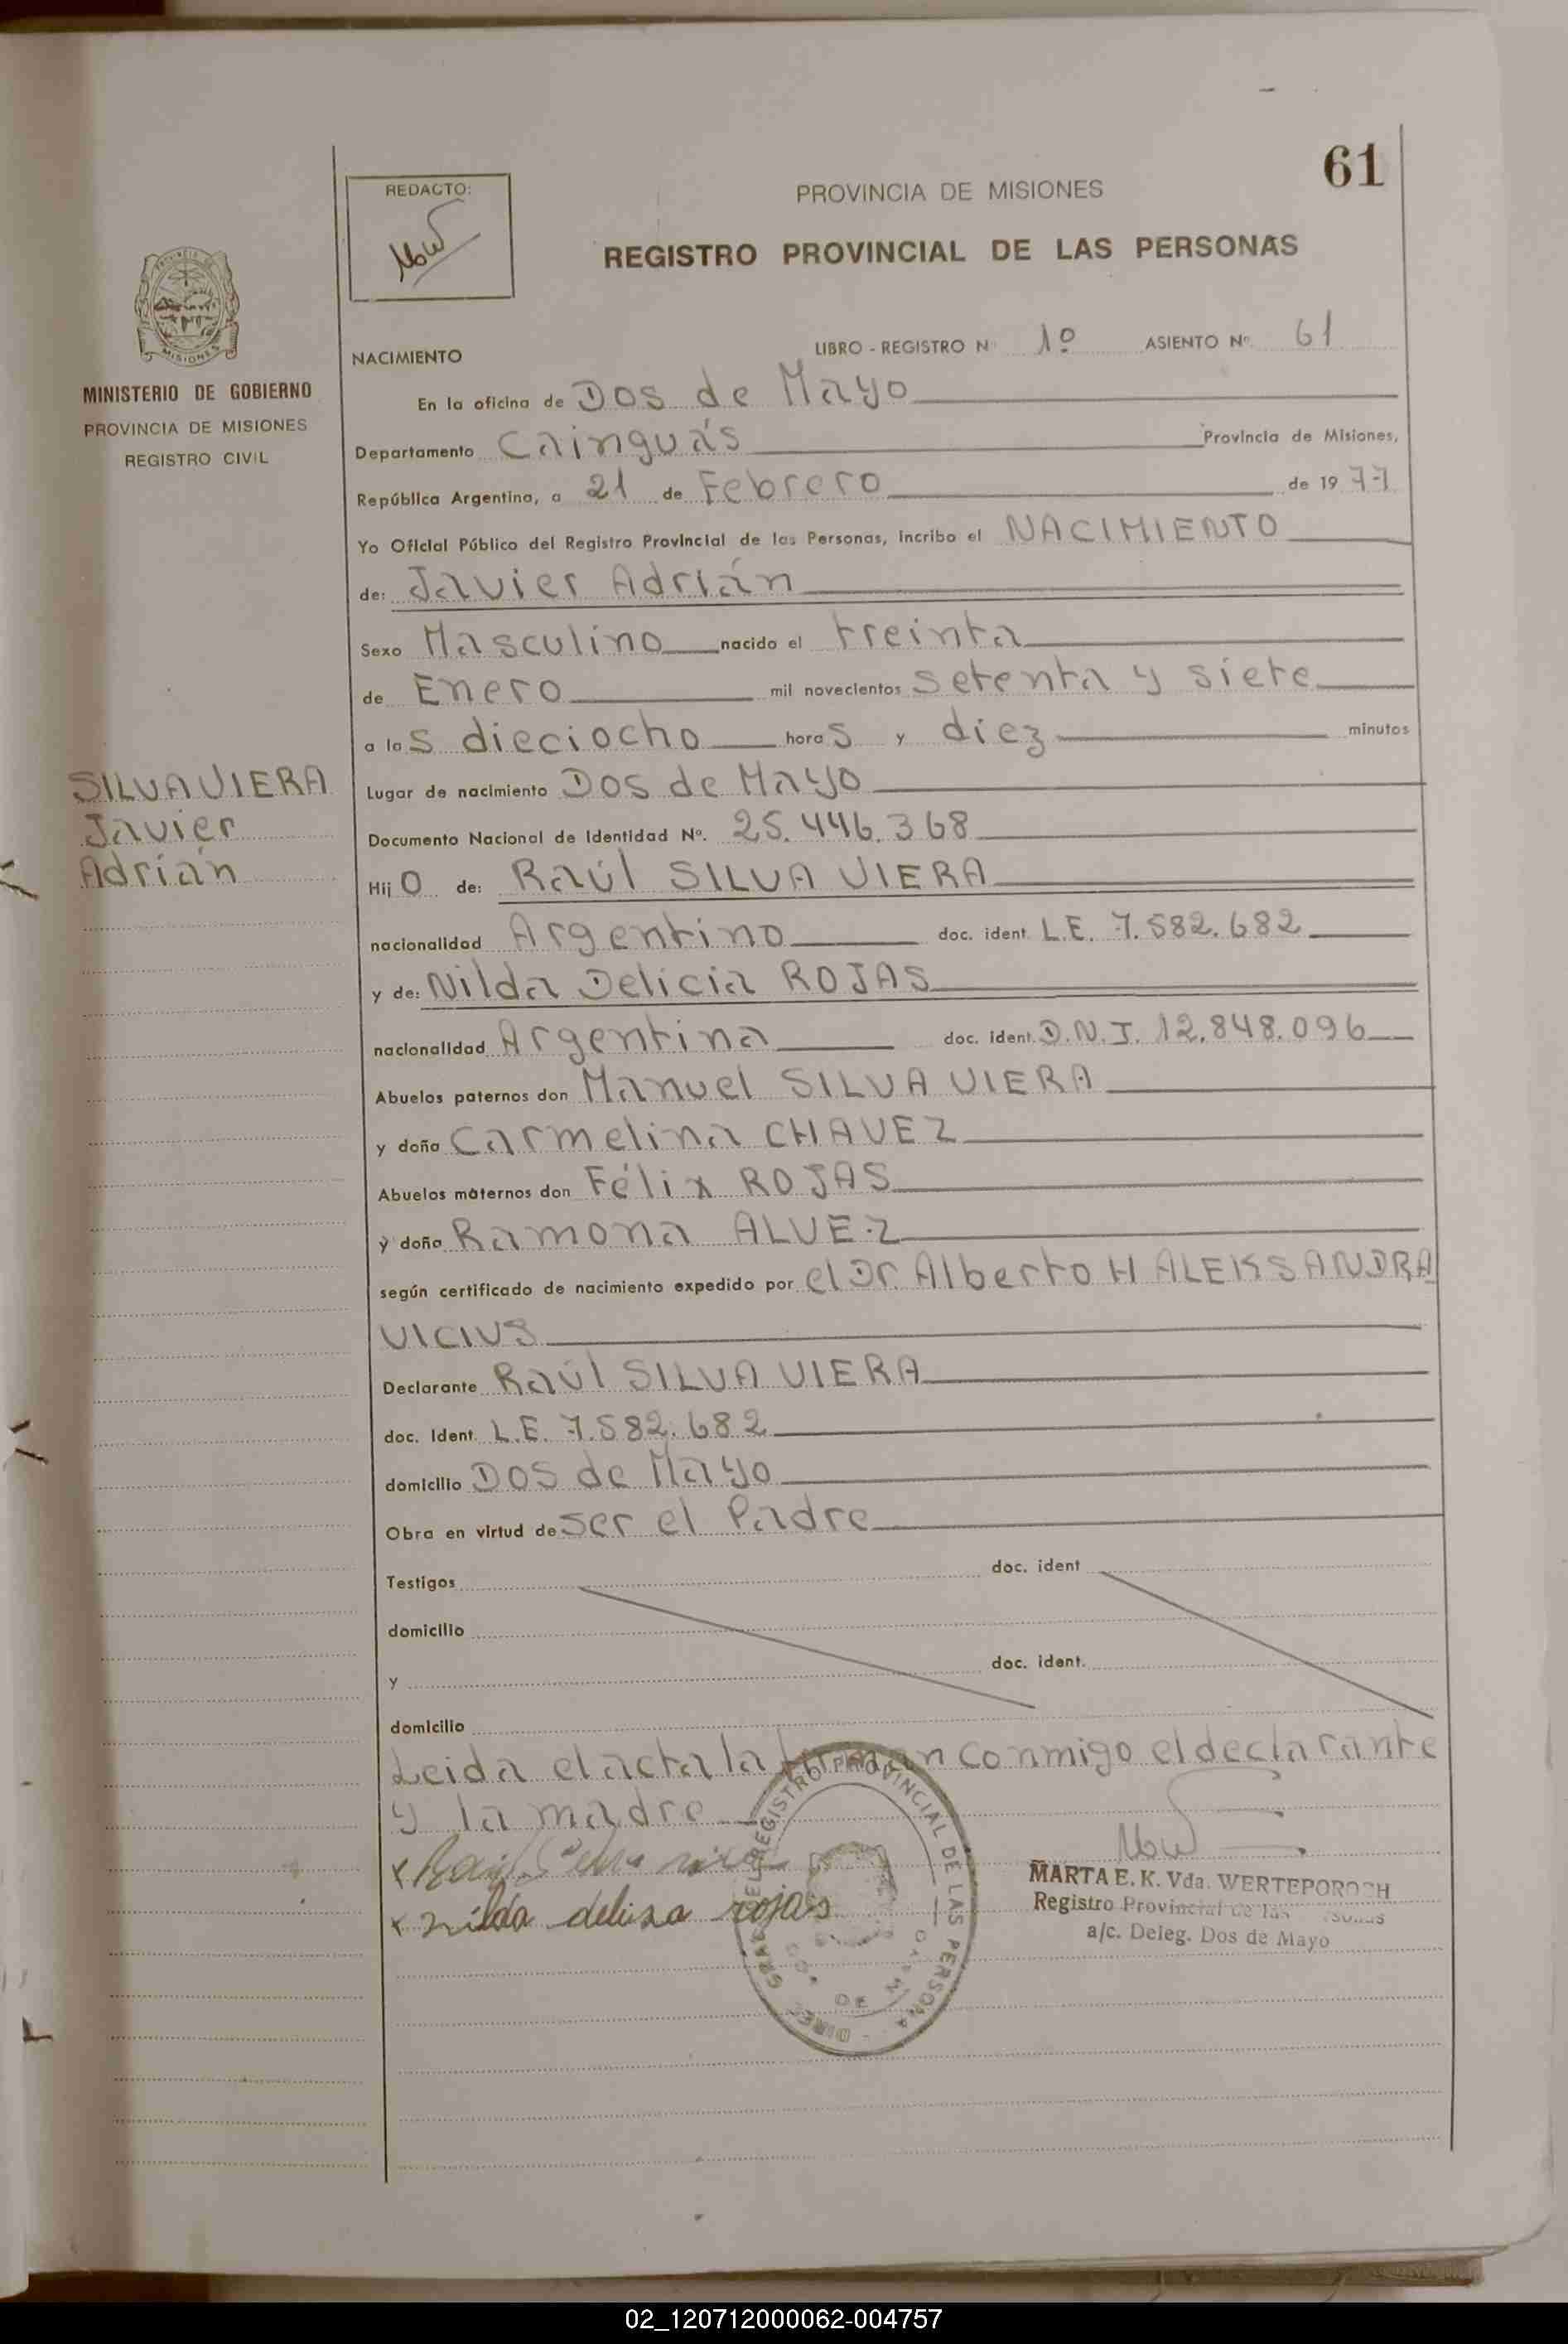 61
REDACTO:
PROVINCIA DE MISIONES
REGISTRO PROVINCIAL DE LAS PERSONAS
MISIONES
MINISTERIO DE GOBIERNO
PROVINCIA DE MISIONES
REGISTRO CIVIL
NACIMIENTO
LIBRO - REGISTRO N 1º ASIENTO Nº 61
En la oficina de Dos de Mayo
Departamento Cainguás Provincia de Misiones,
República Argentina, a 21 de Febrero de 1977
Yo Oficial Público del Registro Provincial de las Personas, incribo el NACIMIENTO
de: Javier Adrián
Sexo Masculino nacido el treinta
de Enero mil novecientos setenta y siete
a las dieciocho horas y diez minutos
SILVA VIERA
Javier
Adrián
Lugar de nacimiento Dos de Mayo
Documento Nacional de Identidad Nº. 25.446.368
Hijo de: Raúl SILVA VIERA
nacionalidad Argentino doc. ident L.E. 7.582.682
y de: Nilda Delicia ROJAS
nacionalidad Argentina doc. ident. D.N.I. 12.848.096
Abuelos paternos don Manuel SILVA VIERA
y doña Carmelina CHAVEZ
Abuelos maternos don Félix ROJAS
y doña Ramona ALVEZ
según certificado de nacimiento expedido por el Dr. Alberto H ALEKSANDRA
VICIUS
Declarante Raúl SILVA VIERA
doc. Ident. L.E. 7.582.682
domicilio Dos de Mayo
Obra en virtud de ser el Padre
Testigos doc. ident
domicilio
y doc. ident.
domicilio
Leida el acta la firman conmigo el declarante
y la madre
x Raúl Silva
x nilda delisia rojas
DIREC. GRAL. DEL REGISTRO PROVINCIAL DE LAS PERSONA
DE MAYO
MARTA E. K. Vda. WERTEPOROCH
Registro Provincial de las
a/c. Deleg. Dos de Mayo
02_120712000062-004757